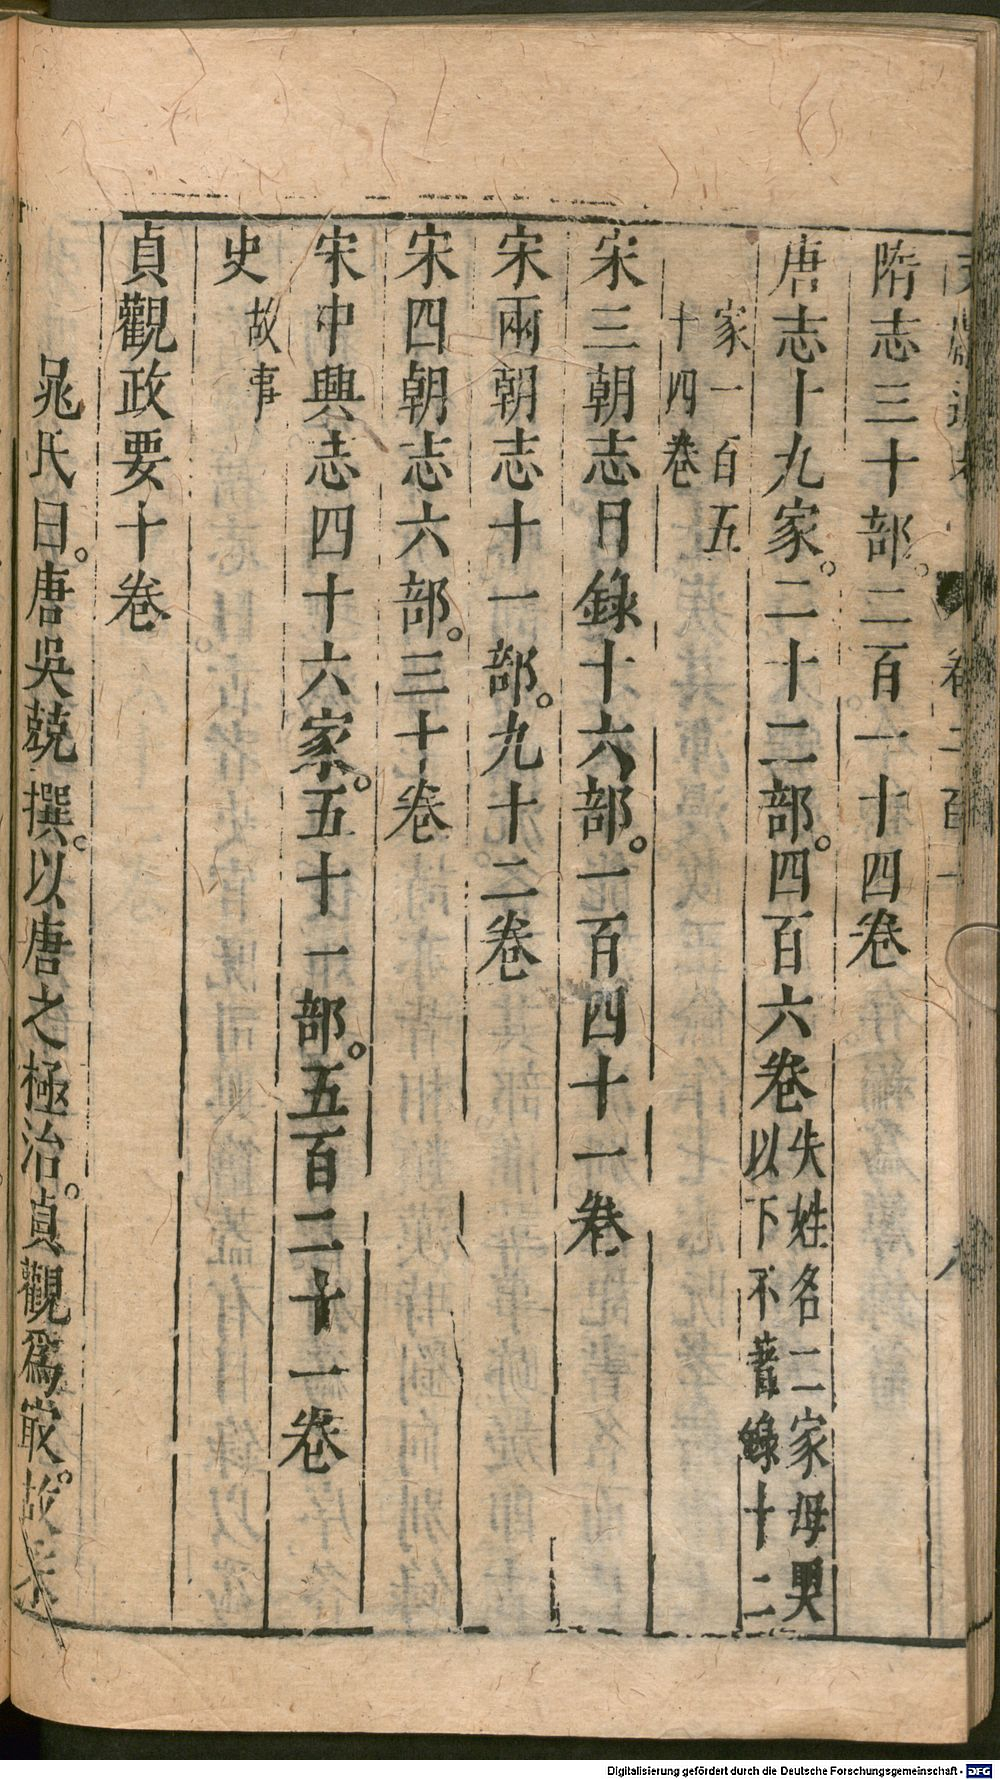 隋志三十部。二百一十四卷
唐志十九家。二十二部。四百六卷失姓名二家毋煚
以下不著錄十二
家一百五
十四卷
宋三朝志日錄十六部。一百四十一卷
宋兩朝志十一部。九十二卷
宋四朝志六部。三十卷
宋中興志四十六家。五十一部。五百二十一卷
史故事
貞觀政要十卷
晁氏曰。唐吳兢撰。以唐之極治。貞觀爲最。故采
Digitalisierung gefördert durch die Deutsche Forschungsgemeinschaft - DFG